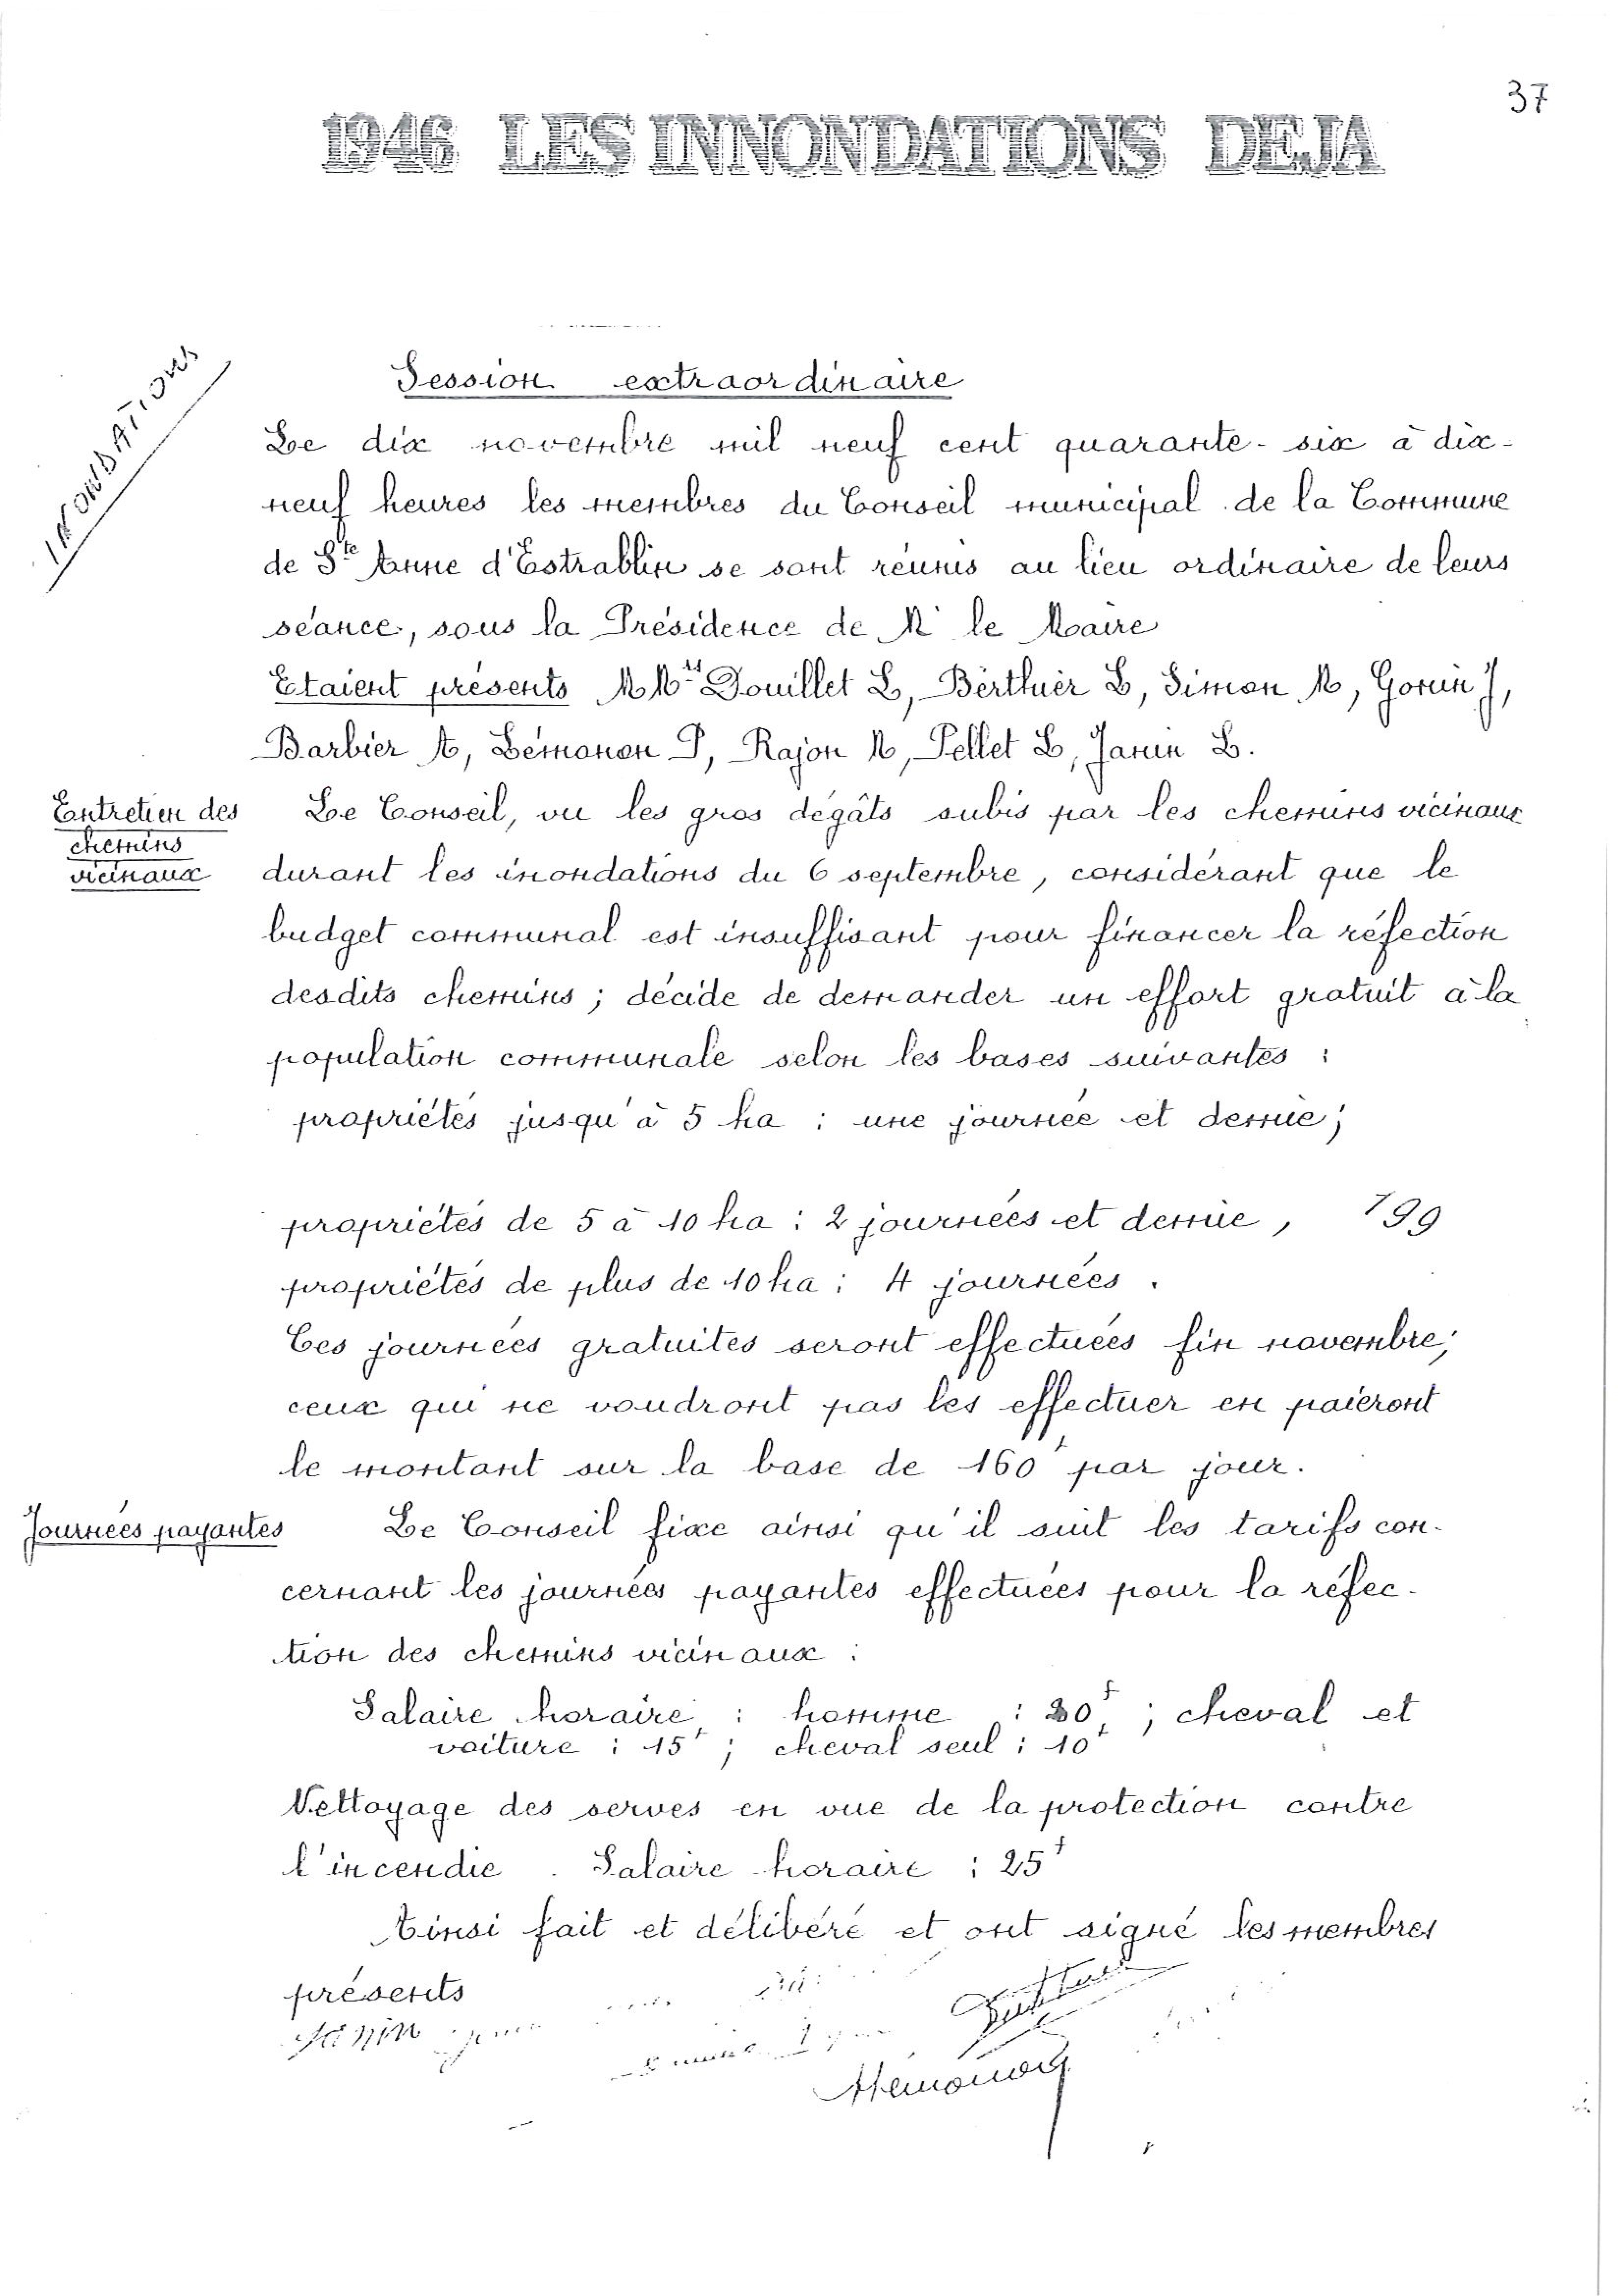 37
1946 LES INNONDATIONS DEJA
INONDATIONS
Session extraordinaire
Le dix novembre mil neuf cent quarante-six à dix-
neuf heures les membres du Conseil municipal de la Commune
de Ste Anne d'Estrablin se sont réunis au lieu ordinaire de leurs
séance, sous la Présidence de Mr le Maire
Etaient présents MMrs Douillet L, Berthier L, Simon M, Gorin J,
Barbier A, Lémonon P, Rajon M, Pellet L, Janin L.
Entretien des
chemins
vicinaux
Le Conseil, vu les gros dégâts subis par les chemins vicinaux
durant les inondations du 6 septembre, considérant que le
budget communal est insuffisant pour financer la réfection
desdits chemins ; décide de demander un effort gratuit à la
population communale selon les bases suivantes :
propriétés jusqu'à 5 ha : une journée et demie ;
propriétés de 5 à 10 ha : 2 journées et demie, 199
propriétés de plus de 10 ha : 4 journées.
Ces journées gratuites seront effectuées fin novembre ;
ceux qui ne voudront pas les effectuer en paieront
le montant sur la base de 160f par jour.
Journées payantes
Le Conseil fixe ainsi qu'il suit les tarifs con-
cernant les journées payantes effectuées pour la réfec-
tion des chemins vicinaux :
Salaire horaire : homme : 20f ; cheval et
voiture : 15f ; cheval seul : 10f
Nettoyage des serves en vue de la protection contre
l'incendie. Salaire horaire : 25f
Ainsi fait et délibéré et ont signé les membres
présents
Janin
Lémonon